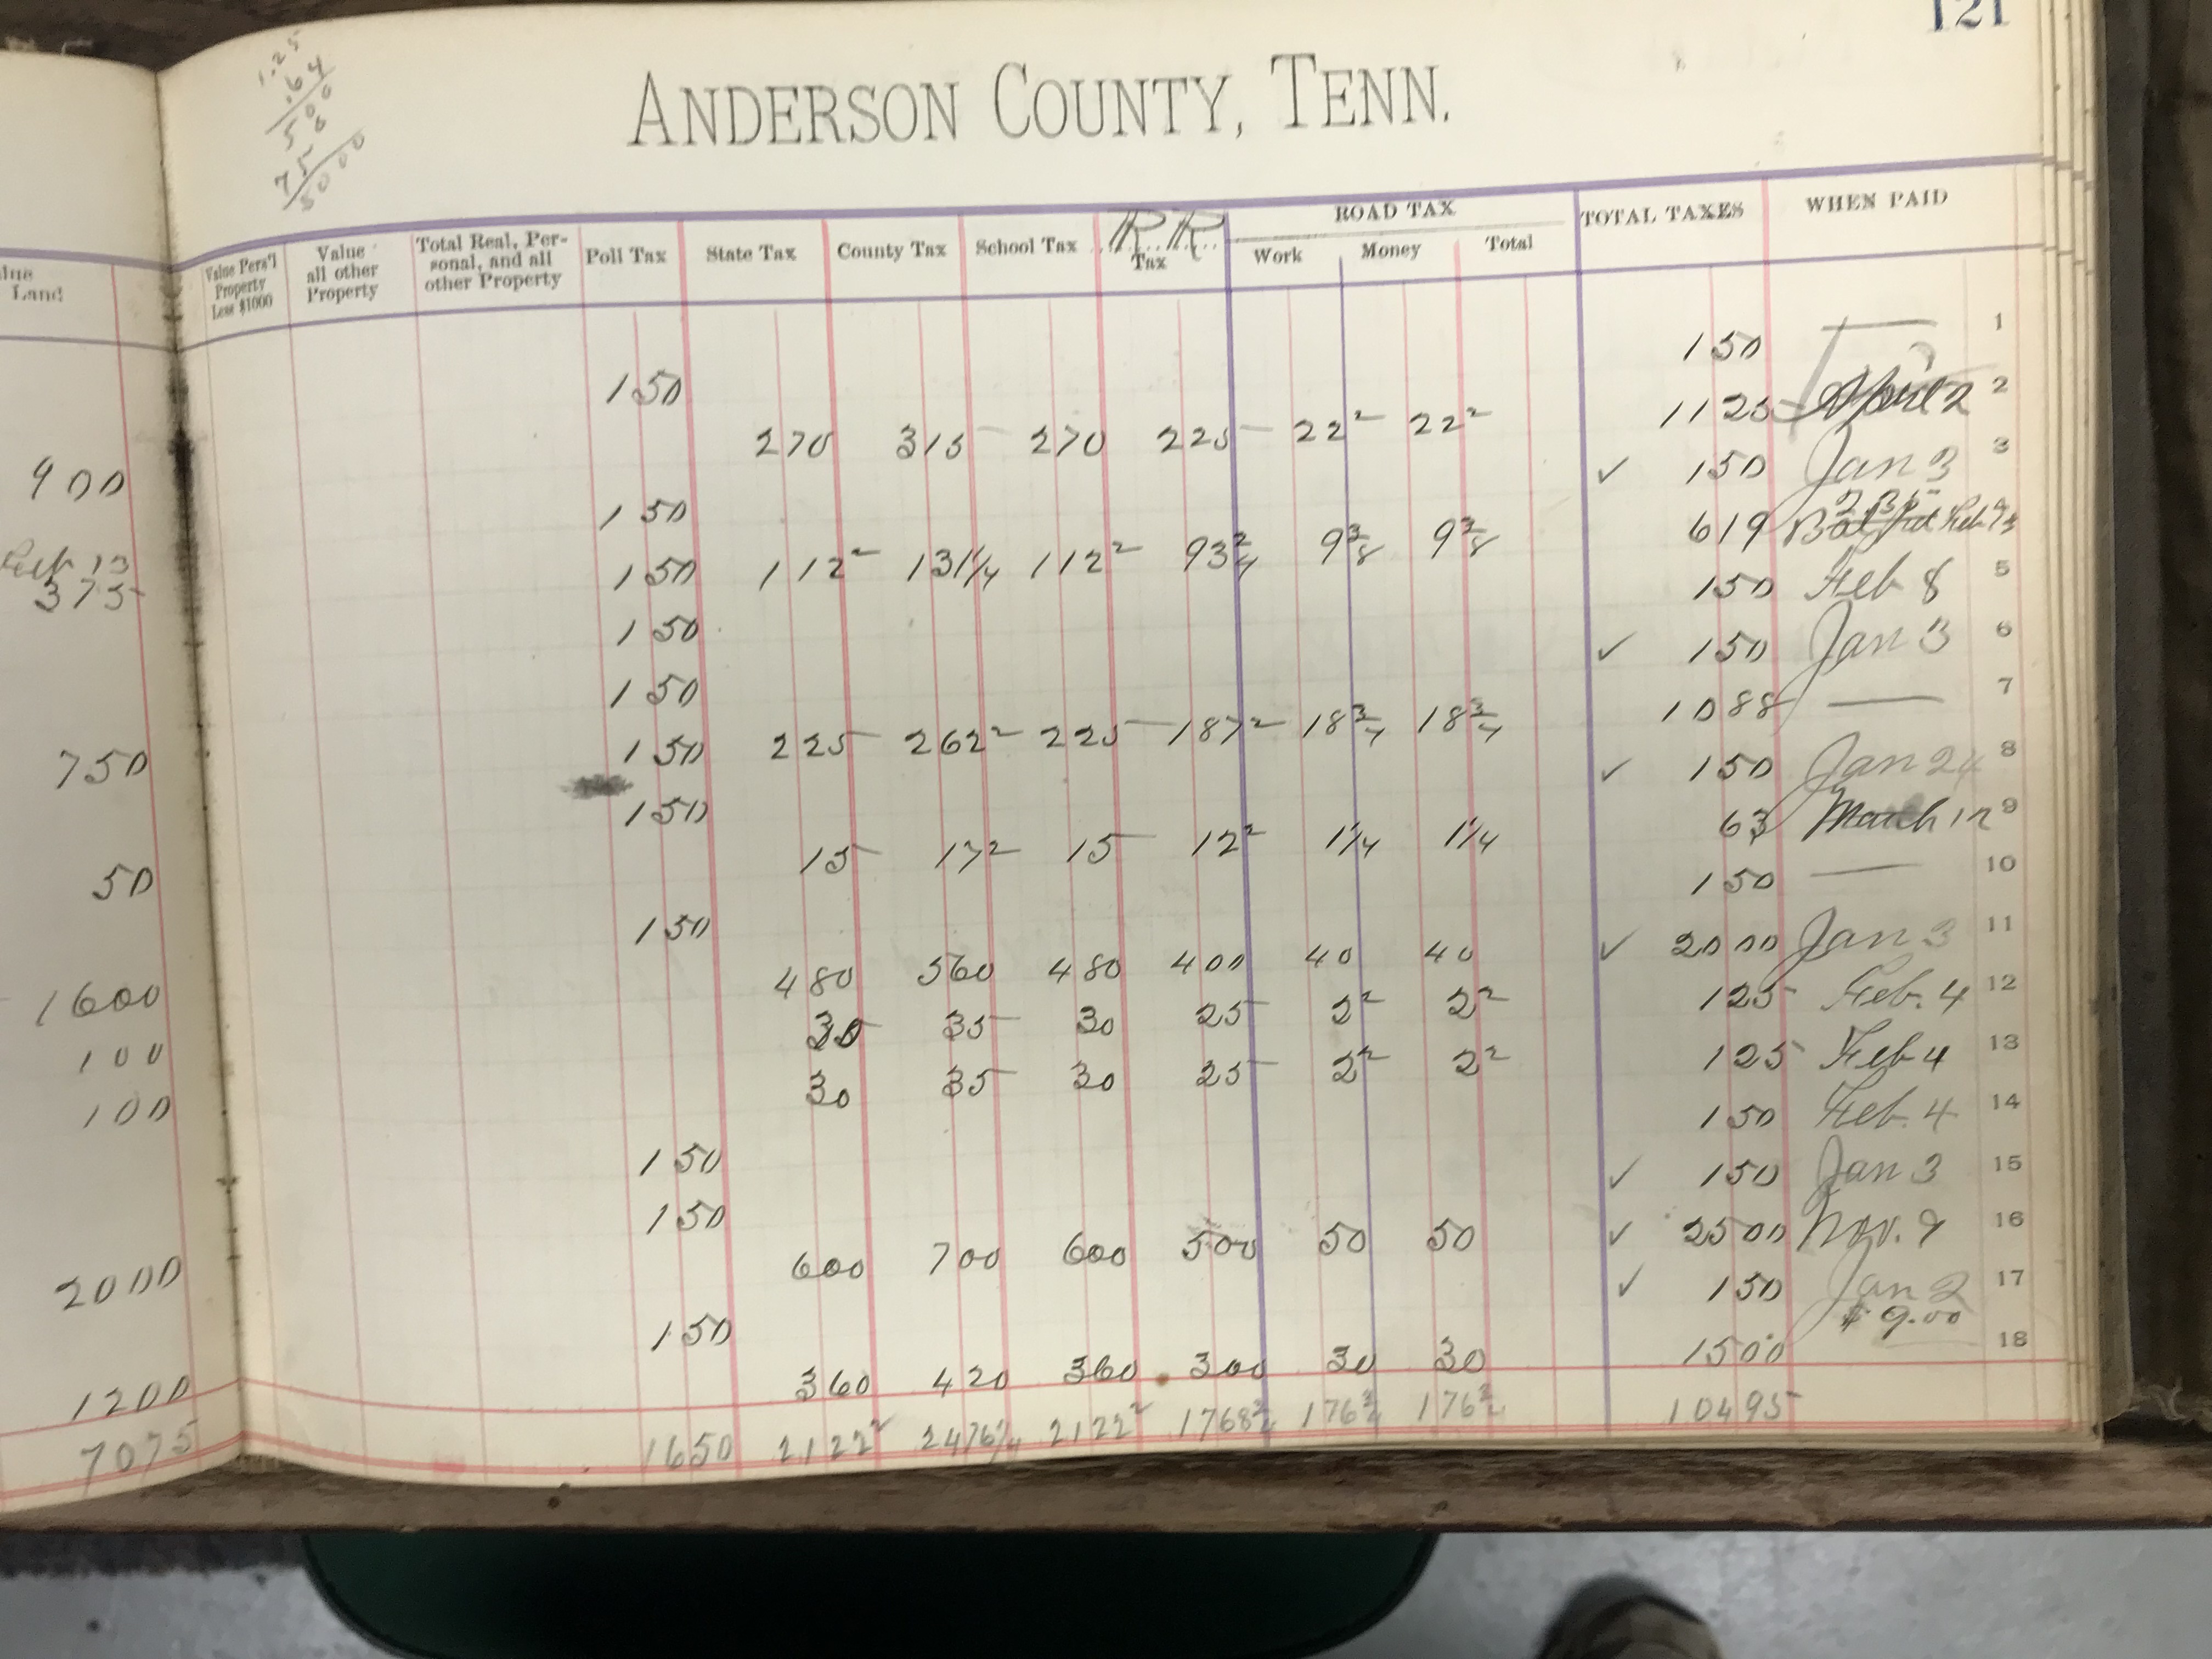 121
1.25
.64
500
750
5000
ANDERSON COUNTY, TENN.
Land
Value Pers'l Property Less $1000
Value all other Property
Total Real, Personal, and all other Property
Poll Tax
State Tax
County Tax
School Tax
R.R. Tax
ROAD TAX
Work
Money
Total
TOTAL TAXES
WHEN PAID
150 150 1
900 270 315 270 225 22² 22² 1125 April 2 2
150 ✓ 150 Jan 3 3
Feb 13
375 150 112² 131 1/4 112² 93 3/4 9 3/8 9 3/8 619 Feb 4
150 150 Feb 8 5
150 ✓ 150 Jan 3 6
750 150 225 262² 225 187² 18 3/4 18 3/4 1088 — 7
150 ✓ 150 Jan 24 8
50 15 17² 15 12² 1 1/4 1 1/4 63 March 12 9
150 150 — 10
1600 480 560 480 400 40 40 ✓ 2000 Jan 3 11
100 30 35 30 25 2² 2² 125 Feb. 4 12
100 30 35 30 25 2² 2² 125 Feb 4 13
150 150 Feb. 4 14
150 ✓ 150 Jan 3 15
2000 600 700 600 500 50 50 ✓ 2500 Nov. 9 16
150 ✓ 150 Jan 2 17
$9.00
1200 360 420 360 300 30 30 1500 18
7075 1650 2122² 2476 1/4 2122² 1768 3/4 176 3/4 176 3/4 10495